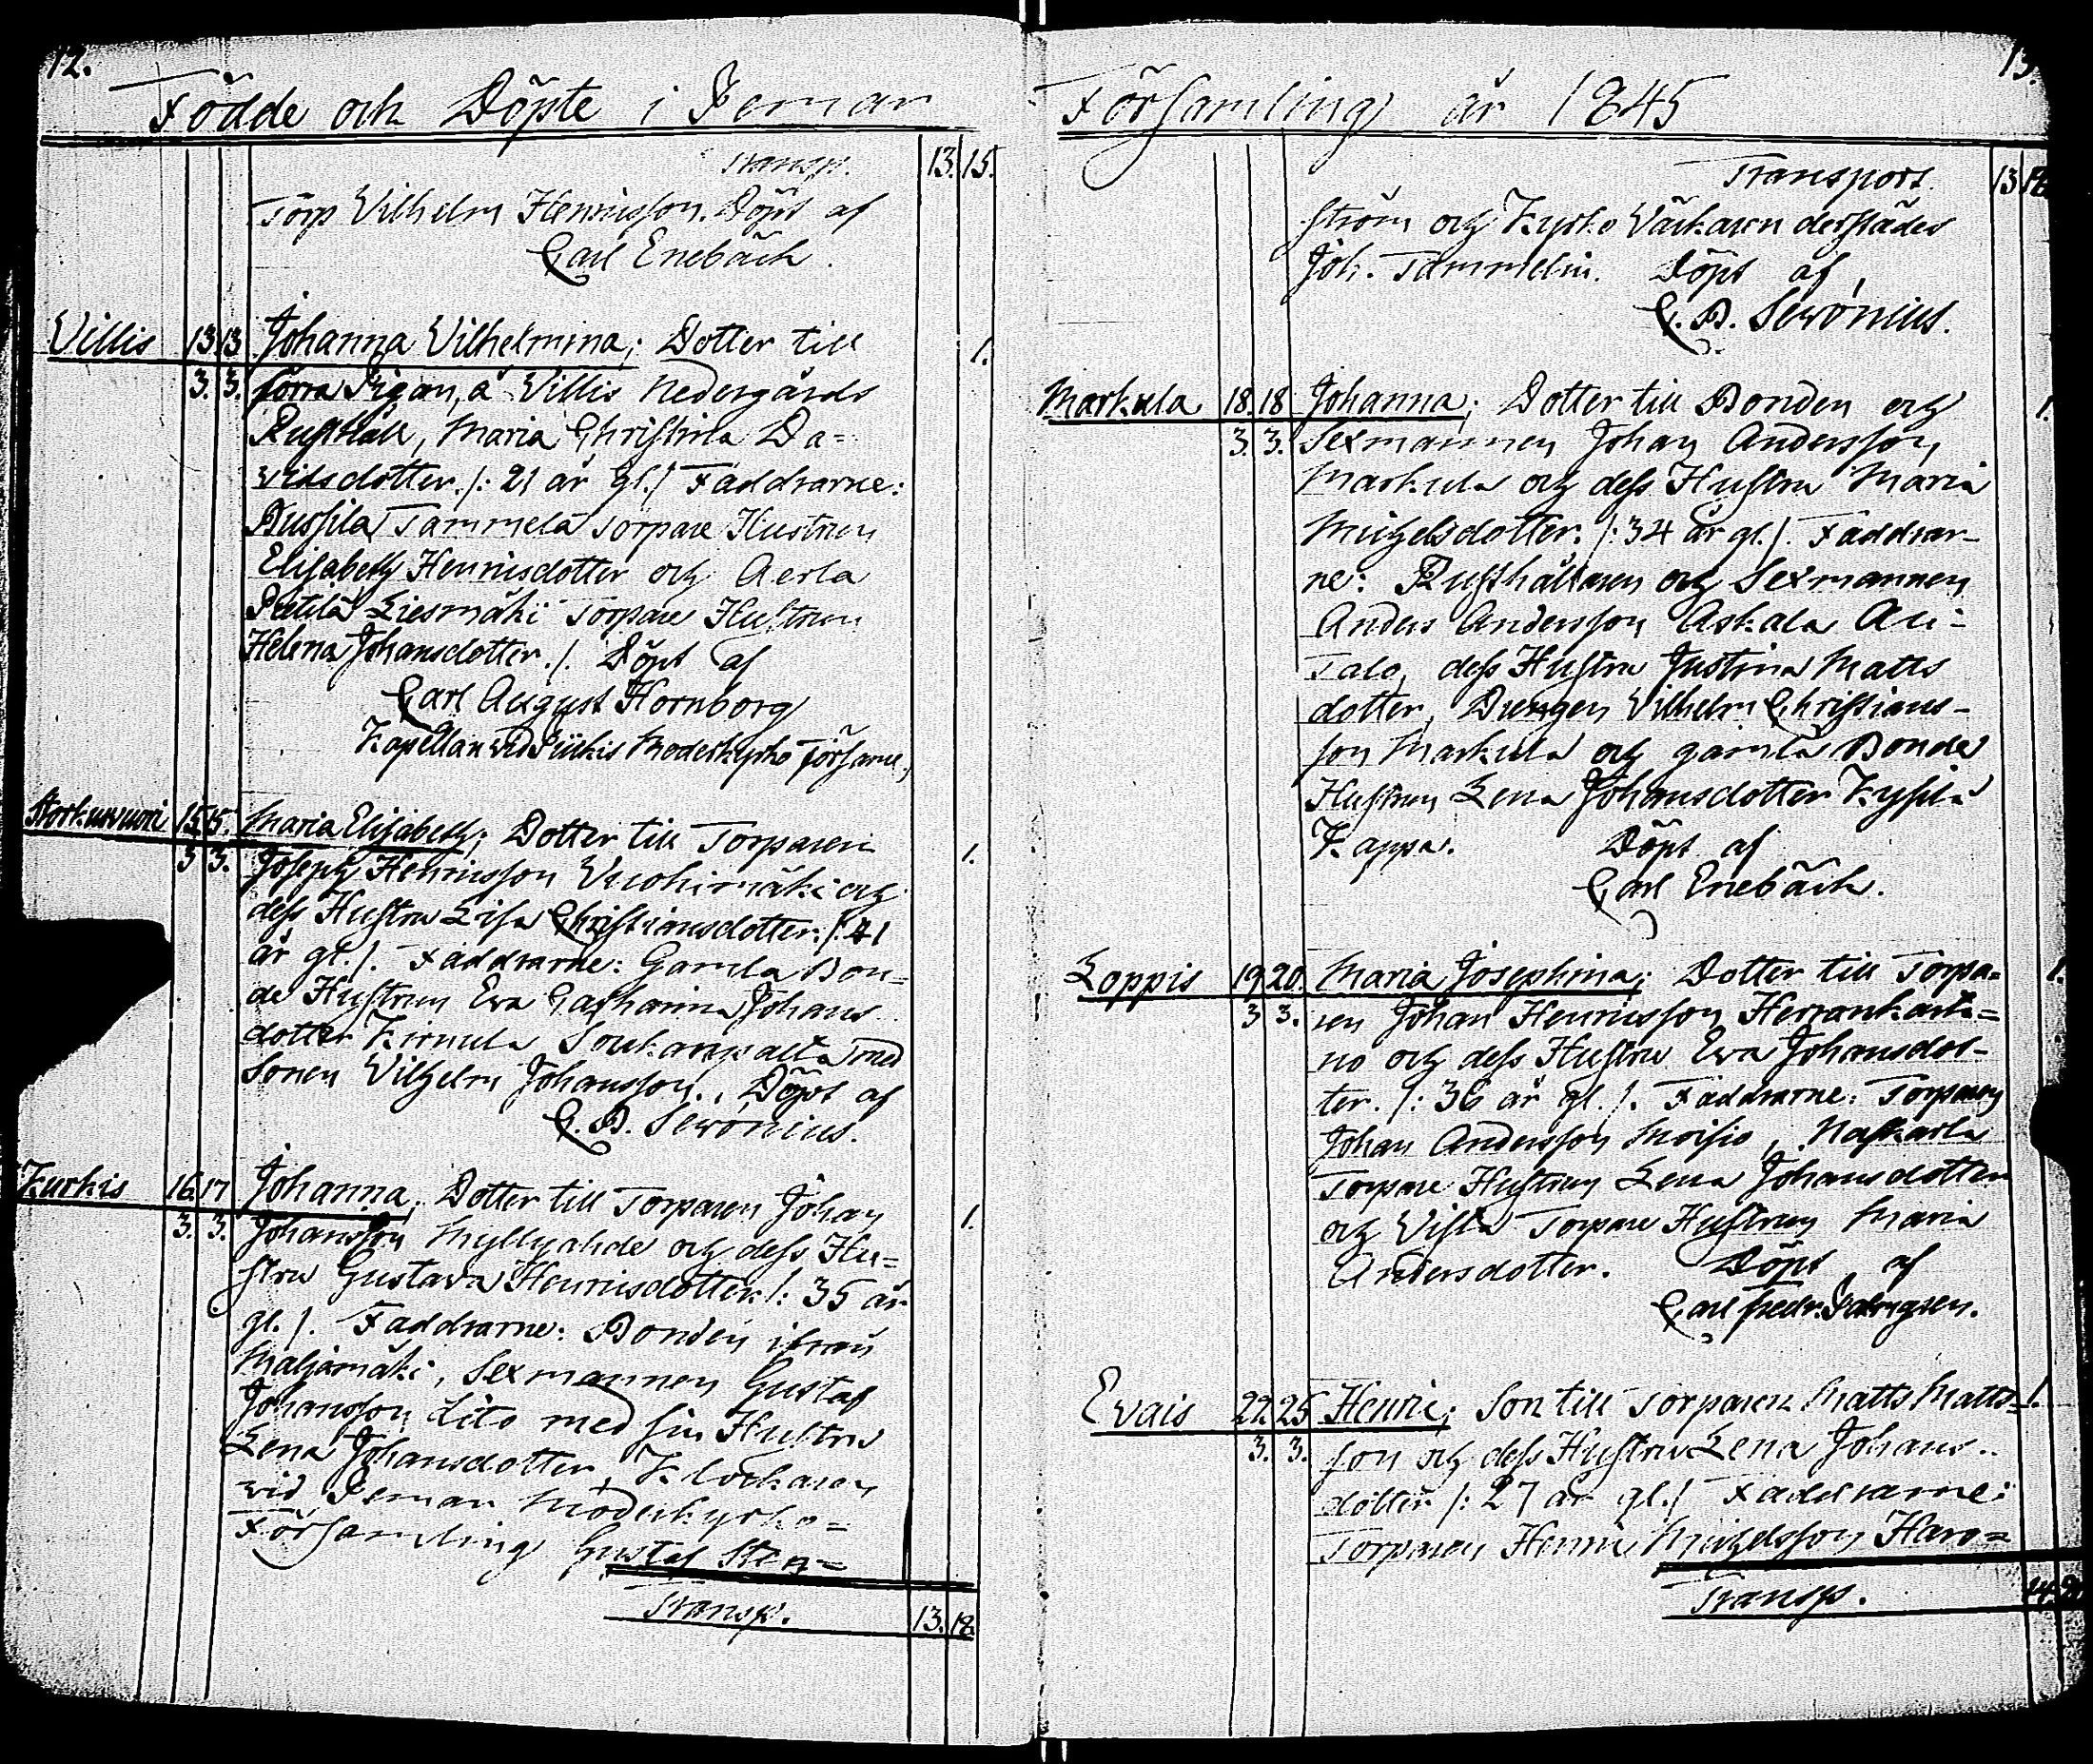 12.
Födde och Döpte i Pemar
Transp. 13. 15.
Torp Vilhelm Henricsson. Döpt af
Carl Enebäck.
Villis 13. 13. Johanna Vilhelmina; Dotter till 1.
3. 3. förra Pigan, å Villis Nedergårds
Rusthåll, Maria Christina Da=
vidsdotter. /: 21 år gl./ Faddrarne:
Tammela Torpare Hustrun
Elisabeth Henricsdotter och Aerla
Liesmäki Torpare Hustrun
Helena Johansdotter./. Döpt af
Carl August Hornborg
Kapellan vid Piikis Moderkyrko Församl.
15. 15. Maria Elisabeth; Dotter till Torparen 1.
3 3. Joseph Henricsson Vuohimäki och
dess Hustru Lisa Christiansdotter. /: 41
år gl./. Faddrarne: Gamla Bon=
de Hustrun Eva Catharina Johans
dotter Kirmula med
Sonen Vilhelm Johansson. Döpt af
C. D. Serónius.
Kurkis 16. 17 Johanna; Dotter till Torparen Johan 1.
3. 3. Johansson Myllyahde och dess Hu=
stru Gustava Henricsdotter. /: 35 år
gl. /. Faddrarne: Bonden ifrån
Maljamäki, Sexmannen Gustaf
Johansson dito med sin Hustru
Lena Johansdotter, Klockaren
vid Pemar Moderkyrko=
Församling Gustaf Sten=
Transp. 13. 18.
13.
Församling år 1845
Transport. 13
ström och Kyrko Väktaren derstädes
Joh. Tammelin. Döpt af
C. D. Serónius.
Markula 18. 18 Johanna; Dotter till Bonden och 1.
3. 3. Sexmannen Johan Andersson
Markula och dess Hustru Maria
Michelsdotter. /: 34 år gl./. Faddrar-
ne: Rusthållaren och Sexmannen
Anders Andersson Askala Ali-
Talo, dess Hustru Justina Matts
dotter, Drengen Vilhelm Christians-
son Markula och gamla Bonde
Hustrun Lena Johansdotter
Kappa. Döpt af
Carl Enebäck.
Loppis 19. 20. Maria Josephina; Dotter till Torpa= 1.
3 3. ren Johan Henricsson Herrankarta=
no och dess Hustru Eva Johansdot-
ter. /: 36 år gl. /. Faddrarne: Torparen
Johan Andersson Moisio, Naskarla
Torpare Hustrun Lena Johansdotter
och Vista Torpare Hustrun Maria
Andersdotter. Döpt af
Carl Fredr.
Evais 22. 25 Henric; Son till Torparen Matts Matts= 1.
3. 3. son och dess Hustru Lena Johans..
dotter /: 27 år gl./ Faddrarne:
Torparen Henric Michelsson Haro=
Transp. 14.